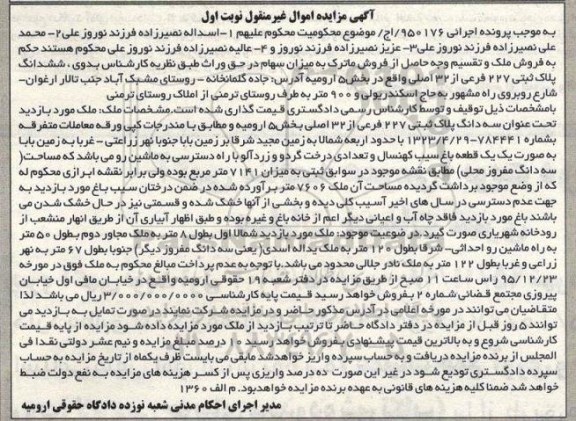 آگهی مزایده اموال غیرمنقول نوبت اول
به موجب پرونده اجرائی ۹۵۰۱۷۶/اج/ موضوع محکومیت محکوم علیهم ۱-اسداله نصیرزاده فرزند نوروز علی ۲- محمد
علی نصیرزاده فرزند نوروز علی ۳- عزیز نصیرزاده فرزند نوروز و ۴- عالیه نصیرزاده فرزند نوروز علی محکوم هستند حکم
به فروش ملک و تقسیم وجه حاصل از فروش ماترک به میزان سهام در حق وراث طبق نظریه کارشناس بدوی ، ششدانگ
پلاک ثبتی ۲۲۷ فرعی از ۳۲ اصلی واقع در بخش ۵ ارومیه آدرس: جاده گلمانخانه - روستای مشبک آباد جنب تالار ارغوان-
شارع روبروی راه مشهور به حاج اسکندرپولی و ۹۰۰ متر به طرف روستای ترمنی از املاک روستای ترمنی
بامشخصات ذیل توقیف و توسط کارشناس رسمی دادگستری قیمت گذاری شده است.مشخصات ملک: ملک مورد بازدید
تحت عنوان سه دانگ پلاک ثبتی ۲۲۷ فرعی از ۳۲ اصلی بخش ۵ ارومیه و مطابق با مندرجات کپی ورقه معاملات متفرقه
بشماره ۷۸۴۴۴۱-۱۳۲۲/۴/۲۹ با حدود اربعه شمالا به زمین مجید شرقا بر زمین بابا جنوبا نهر زراعتی - غربا به زمین بابا
به صورت یک یک قطعه باغ سیب کهنسال و تعدادی درخت گردو و زردآلو با راه دسترسی به ماشین رو می باشد که مساحت(
سه دانگ مفروز محلی) مطابق نقشه موجود در سوابق ثبتی به میزان ۷۱۴۱ متر مربع بوده ولی برابر نقشه ابرازی محکوم له
که از وضع موجود برداشت گردیده مساحت آن ملک ۷۶۰۶ متر برآورده شده در ضمن درختان سیب باغ مورد بازدید به
جهت عدم دسترسی در سال های اخیر آسیب کلی دیده و بخشی از آنها خشک شده و قسمتی نیز در حال خشک شدن می
باشند باغ مورد بازدید فاقد چاه آب و اعیانی دیگر اعم از خانه باغ و غیره بوده و طبق اظهار آبیاری آن از طریق انهار منشعب از
رودخانه شهریاری صورت گیرد.در ضوعیت موجود: ملک مورد بازدید شمالا اول بطول ۸ متر به ملک مجاور دوم بطول ۵۰ متر
به راه ماشین رو احداثی- شرقا بطول ۱۲۰ متر به ملک یداله اسدی( یعنی سه دانگ مفروز دیگر) جنوبا بطول ۶۷ متر به نهر
زراعی و غربا بطول ۱۲۲ متر به ملک نادر جلالی محدود می باشد.با توجه به عدم پرداخت مبالغ محکوم به ملک فوق در مورخه
۹۵/۱۲/۲۳ راس ساعت ۱۱ صبح از طریق مزایده در دفتر شعبه ۱۹ حقوقی ارومیه واقع در خیابان مافی اول خیابان
پیروزی مجتمع قضائی شماره ۲ بفروش خواهد رسید قیمت پایه کارشناسی ۳/۰۰۰/۰۰۰/۰۰۰ ریال می باشد لذا
متقاضیان می توانند در مورخه اعلامی در آدرس مذکور حاضر و در مزایده شرکت نمایند در صورت تمایل به بازدید می
توانند ۵ روز قبل از مزایده در دفتر دادگاه حاضر تا ترتیب بازدید از ملک مورد مزایده داده شود مزایده از پایه قیمت
کارشناسی شروع و به بالاترین قیمت پیشنهادی بفروش خواهد رسید ۱۰ درصد مبلغ مزایده و نیم عشر دولتی نقدا فی
المجلس از برنده مزایده دریافت و به حساب سپرده واریز خواهدشد مابقی می بایست ظرف یکماه از تاریخ مزایده به حساب
سپرده دادگستری تودیع شود در غیر این صورت ده درصد واریزی پس از کسر هزینه های مزایده به نفع دولت ضبط
خواهد شد ضمنا کلیه هزینه های قانونی به عهده برنده مزایده خواهدبود. م الف ۱۳۶۰
مدیر اجرای احکام مدنی شعبه نوزده دادگاه حقوقی ارومیه